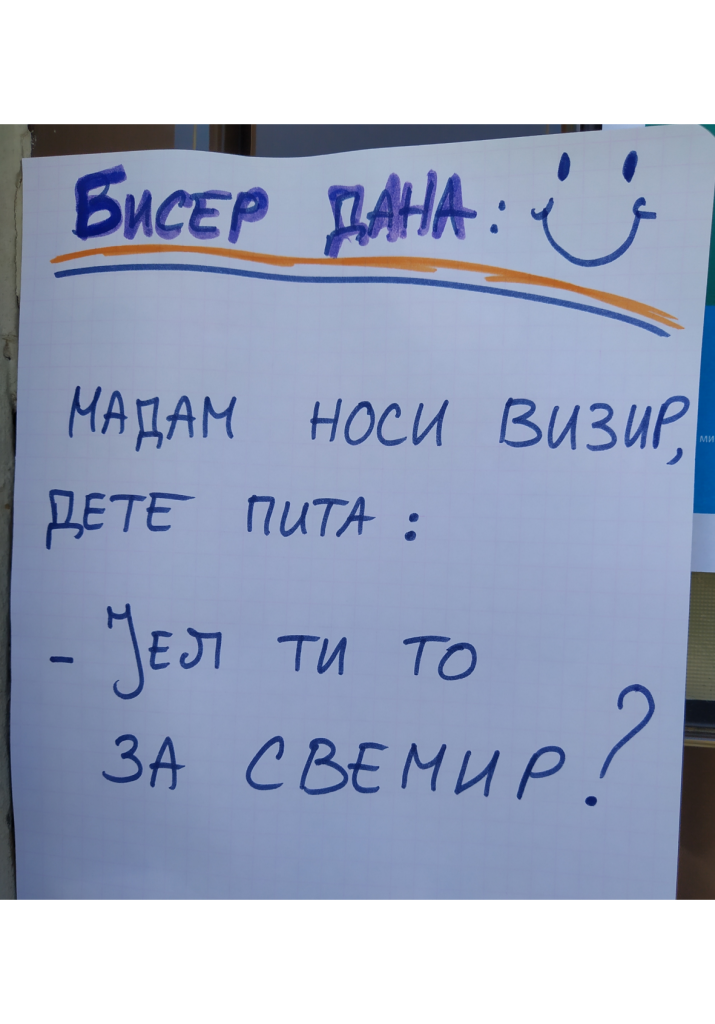 БИСЕР ДАНА:
МАДАМ НОСИ ВИЗИР,
ДЕТЕ ПИТА:
- ЈЕЛ ТИ ТО
ЗА СВЕМИР?
ми